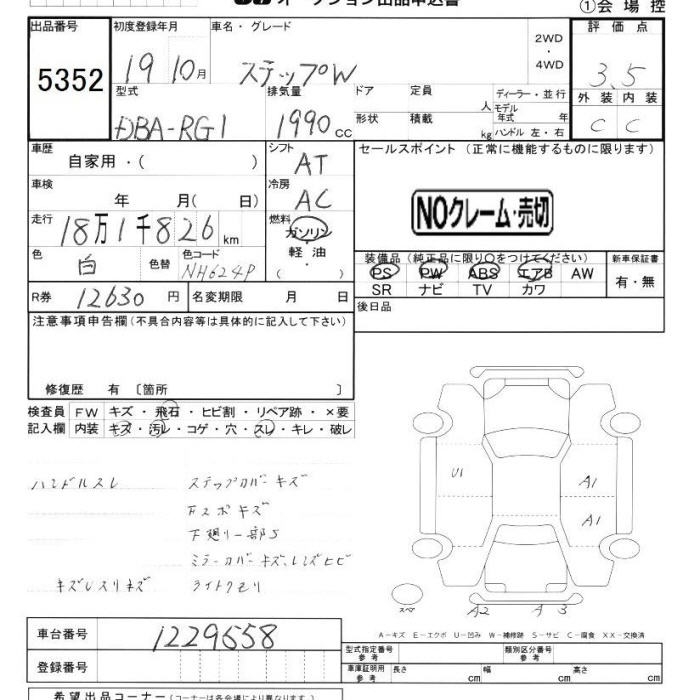 オークション出品申込書 ①会場控
出品番号 初度登録年月 車名・グレード 2WD・4WD 評価点
5352 19 10月 ステップW 3.5
型式 排気量 ドア 定員 人 ディーラー・並行 外装 内装
DBA-RG1 1990cc 形状 積載 kg モデル年式 年 ハンドル 左・右 C C
車歴 自家用・( ) シフト AT セールスポイント(正常に機能するものに限ります)
車検 年 月( 日) 冷房 AC NOクレーム・売切
走行 18万1千826km 燃料 ガソリン・軽油( )
色 白 色替 色コード NH624P 装備品(純正品に限り○をつけてください) 新車保証書
PS PW ABS エアB AW 有・無
SR ナビ TV カワ
R券 12630円 名変期限 月 日 後日品
注意事項申告欄(不具合内容等は具体的に記入して下さい)
修復歴 有 〔箇所 〕
検査員 FW キズ・飛石・ヒビ割・リペア跡・×要
記入欄 内装 キズ・汚レ・コゲ・穴・スレ・キレ・破レ
ハンドルスレ ステップカバーキズ
Fスポキズ
下廻り一部S
ミラーカバーキズ、レンズヒビ
ライトクモリ
U1 A1
A1
スペア A2 A3
A-キズ E-エクボ U-凹み W-補修跡 S-サビ C-腐食 XX-交換済
車台番号 1229658 型式指定番号参考 類別区分番号参考
登録番号 車庫証明用参考 長さ cm 幅 cm 高さ cm
希望出品コーナー(コーナーは各会場により異なります)